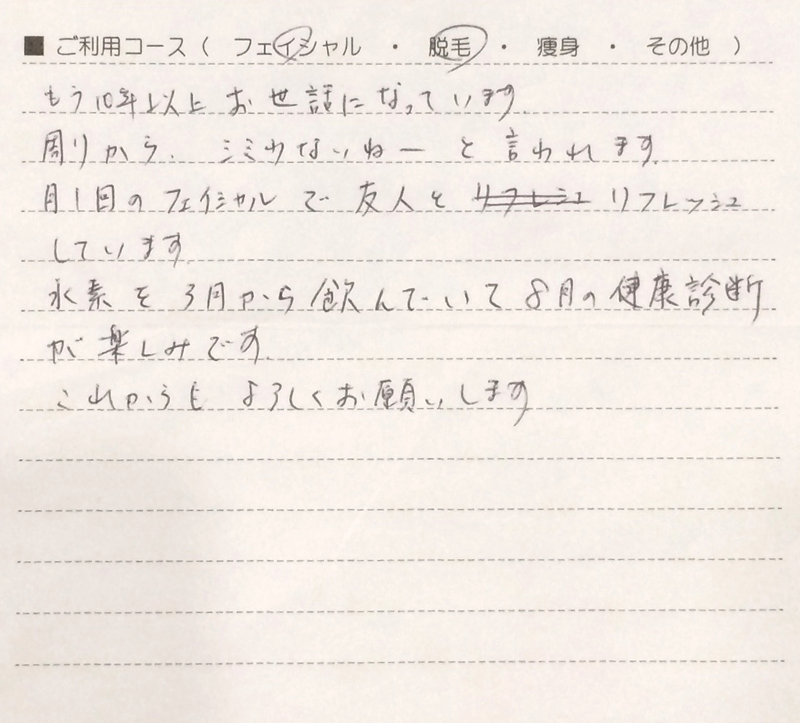 ■ ご利用コース（ フェイシャル ・ 脱毛 ・ 痩身 ・ その他 ）
もう10年以上お世話になっています。
周りから、シミ少ないねーと言われます。
月1回のフェイシャルで友人と リフレシュ リフレッシュ
しています。
水素を3月から飲んでいて8月の健康診断
が楽しみです。
これからもよろしくお願いします